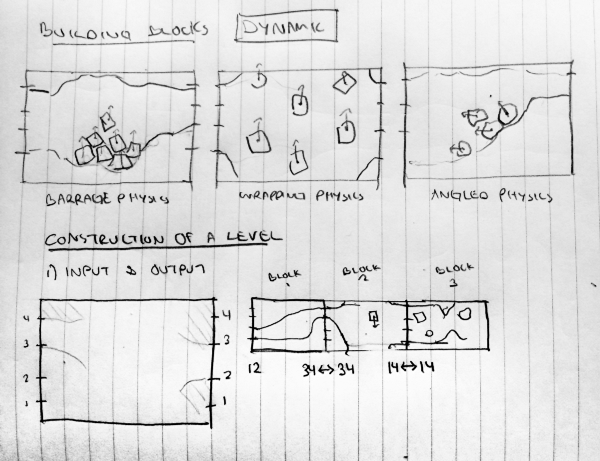 BUILDING BLOCKS DYNAMIC
BARRAGE PHYSICS WRAPPING PHYSICS ANGLED PHYSICS
CONSTRUCTION OF A LEVEL
1) INPUT & OUTPUT
BLOCK 1 BLOCK 2 BLOCK 3
4 4
3 3
2 2
1 1
12 34↔34 14↔14